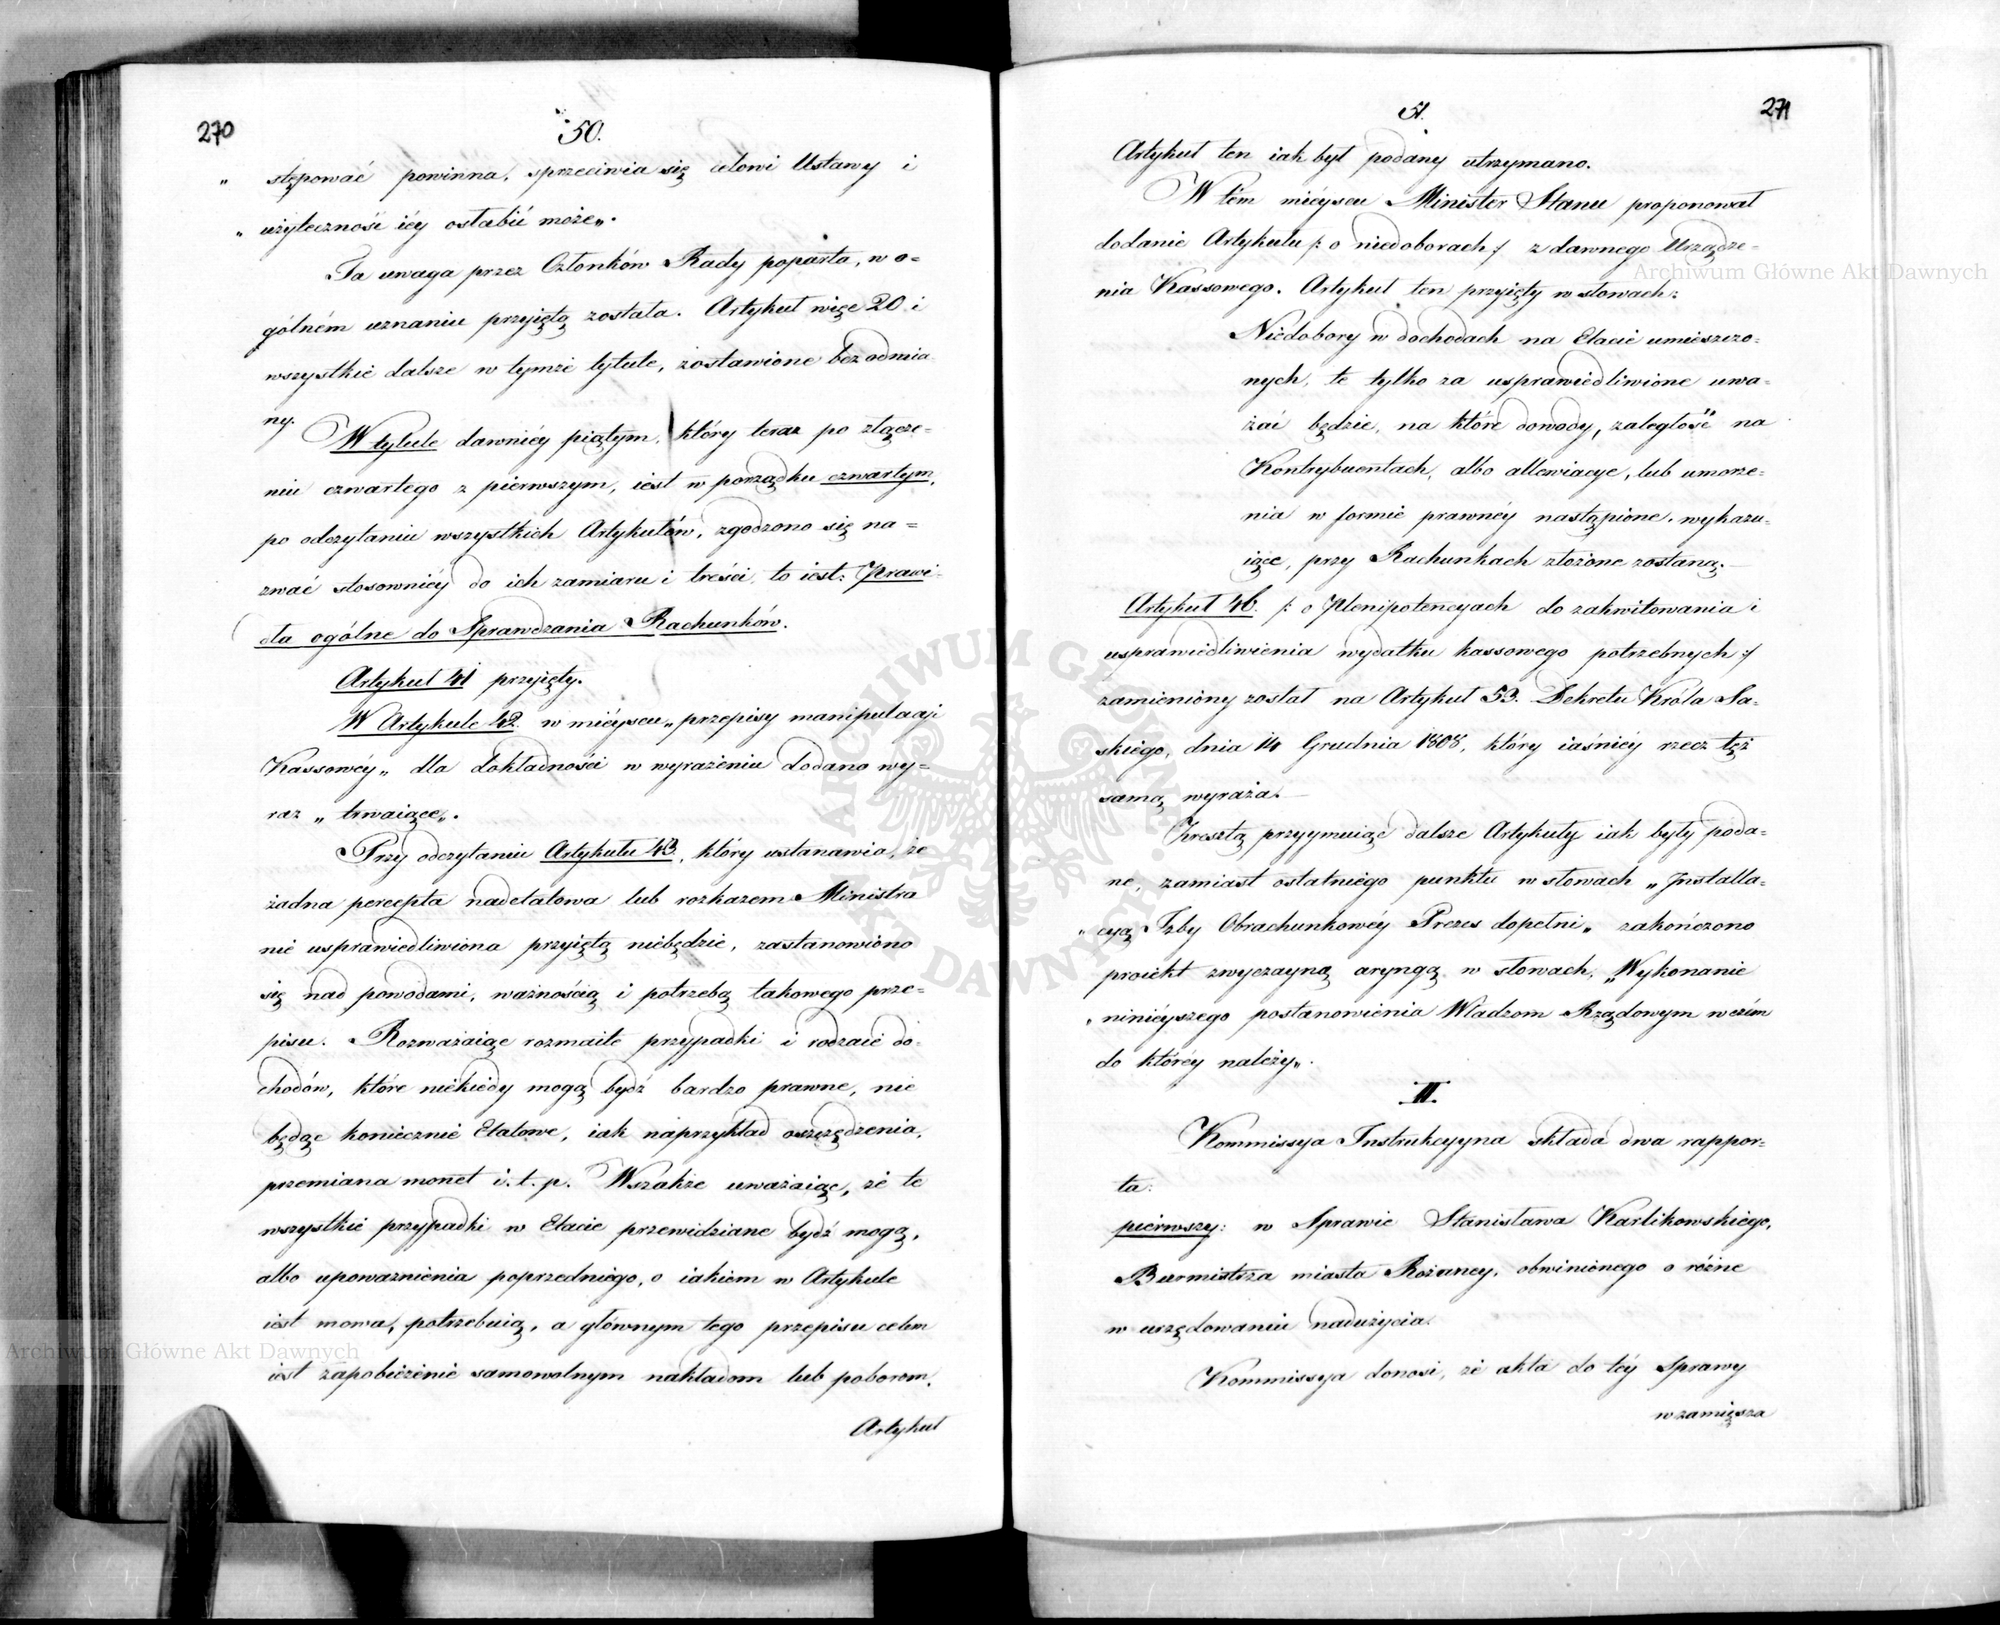 270
50.
„ stępować powinna, sprzeciwia się celowi Ustawy i
„ użyteczność iéy osłabić może„.
Ta uwaga przez Członków Rady poparta, w o=
gólném uznaniu przyiętą została. Artykuł więc 20 i
wszystkie dalsze w tymże tytule, zostawione bez odmia
ny.
W tytule dawniéy piątym, który teraz po złącze=
niu czwartego z pierwszym, iest w porządku czwartym,
po odczytaniu wszystkich Artykułów, zgodzono się na=
zwać stosowniéy do ich zamiaru i treści, to iest: Prawi=
dła ogólne do Sprawdzania Rachunków.
Artykuł 41 przyięty.
W Artykule 42 w mieyscu „przepisy manipulacji
Kassowéy„ dla dokładności w wyrażeniu dodano wy=
raz „trwaiące„.
Przy odczytaniu Artykułu 43, który ustanawia, że
żadna percepta nadetatowa lub rozkazem Ministra
nie usprawiedliwiona przyiętą niebędzie, zastanowiono
się nad powodami, ważnością i potrzebą takowego prze=
pisu. Rozważaiąc rozmaite przypadki i rodzaie do=
chodów, które niekiedy mogą bydź bardzo prawne, nie
będąc koniecznie Etatowe, iak naprzykład oszczędzenia,
przemiana monet i. t. p. Wszakże uważaiąc, że te
wszystkie przypadki w Etacie przewidziane bydź mogą,
albo upoważnienia poprzedniego, o iakiem w Artykule
iest mowa, potrzebuią, a głównym tego przepisu celem
iest zapobieżenie samowolnym nakładom lub poborom,
Artykuł
51.
271
Artykuł ten iak był podany utrzymano.
W tém mieyscu Minister Stanu proponował
dodanie Artykułu /: o niedoborach :/ z dawnego Urządze=
nia Kassowego. Artykuł ten przyięty w słowach:
Niedobory w dochodach na Etacie umieszczo=
nych, te tylko za usprawiedliwione uwa=
żać będzie, na które dowody, zaległość na
Kontrybuentach, albo allewiacye, lub umorze=
nia w formie prawnéy nastąpione, wykazu=
iące, przy Rachunkach złożone zostaną.
Artykuł 46. /: o Plenipotencyach do zakwitowania i
usprawiedliwienia wydatku kassowego potrzebnych :/
zamieniony został na Artykuł 53. Dekretu Króla Sa=
skiego, dnia 14 Grudnia 1808, który iaśniéy rzecz tęż
samą wyraża.
Zresztą przyymuiąc dalsze Artykuły iak były poda=
ne, zamiast ostatniego punktu w słowach „Installa=
„cyą Izby Obrachunkowéy Prezes dopełni„ zakończono
proiekt zwyczayną aryngą w słowach, „Wykonanie
„ninieyszego postanowienia Władzom Rządowym w czém
do któréy należy„.
II.
Kommissya Instrukcyyna składa dwa rappor=
ta:
pierwszy: w Sprawie Stanisława Karlikowskiego,
Burmistrza miasta Rożaney, obwinionego o różne
w urzędowaniu nadużycia.
Kommissya donosi, że akta do téy Sprawy
wzamięsza
Archiwum Główne Akt Dawnych
Archiwum Główne Akt Dawnych
ARCHIWUM GŁÓWNE AKT DAWNYCH